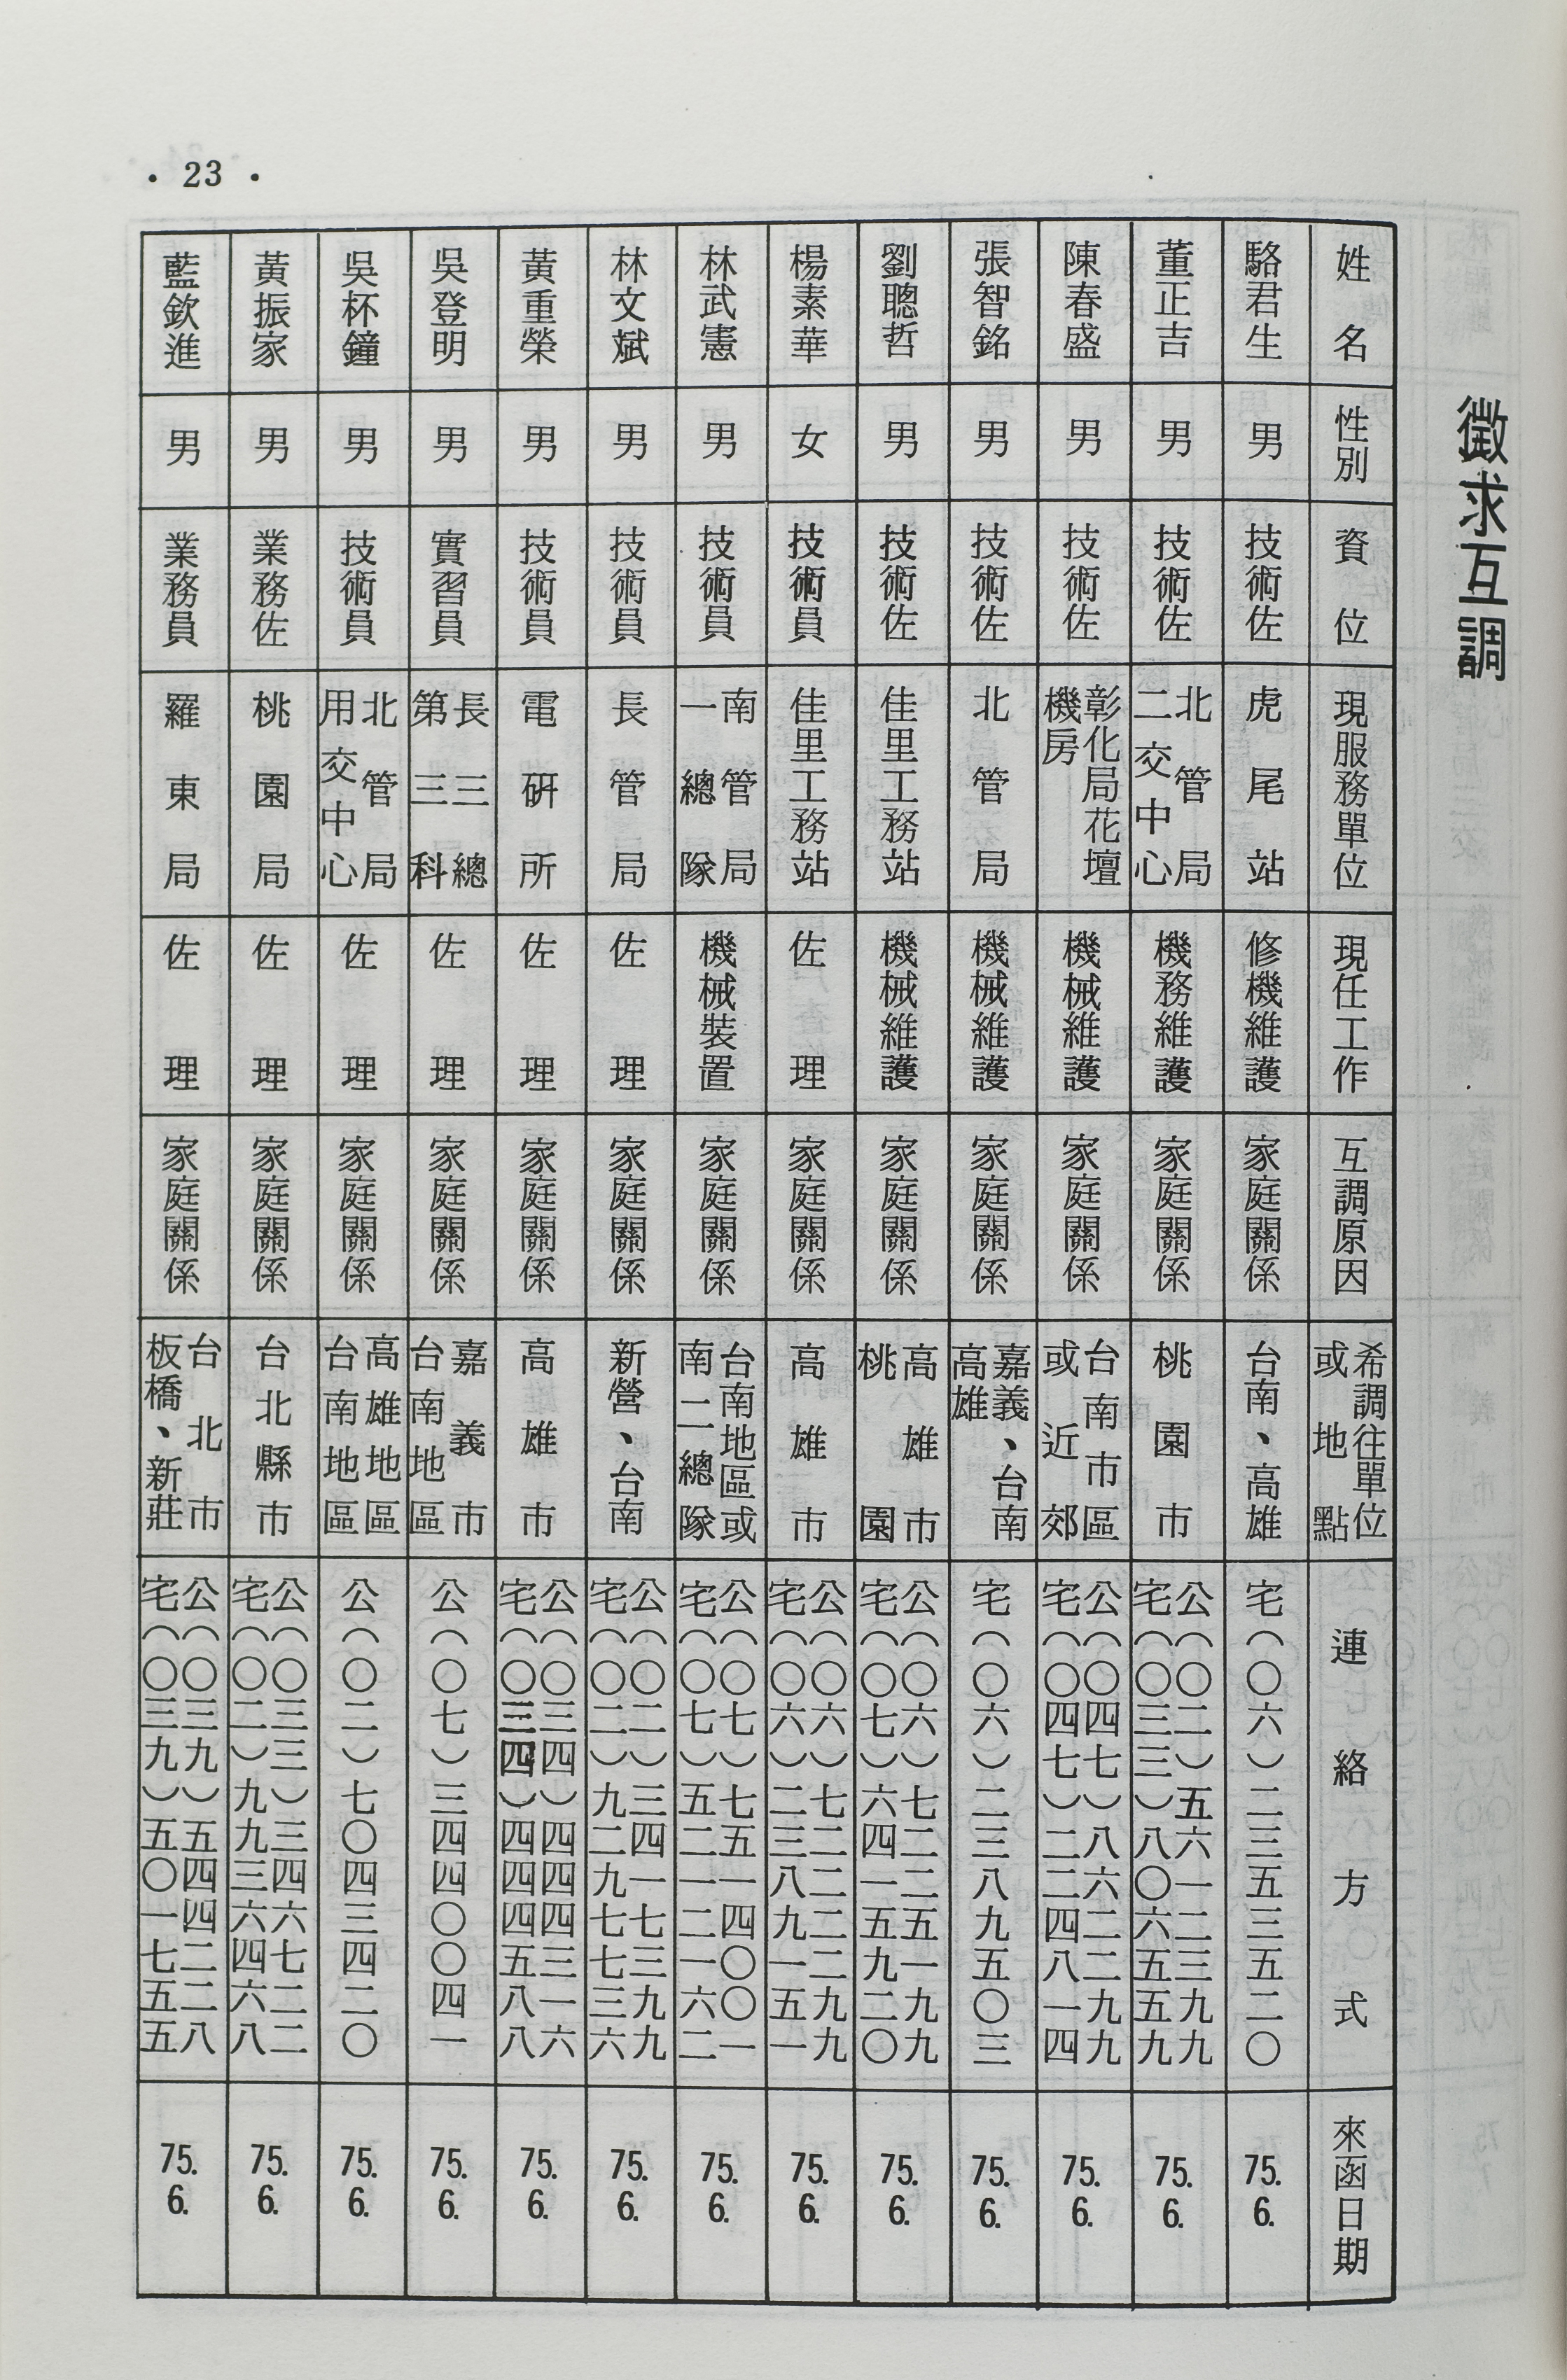 徵求互調
姓名
性別
資位
現服務單位
現任工作
互調原因
希調往單位
或地點
連絡方式
來函日期
駱君生
男
技術佐
虎尾站
修機維護
家庭關係
台南、高雄
宅（〇六）二三五三五二〇
75.
6.
董正吉
男
技術佐
北管局
二交中心
機務維護
家庭關係
桃園市
公（〇二）五六一二三九九
宅（〇三三）八〇六五五九
75.
6.
陳春盛
男
技術佐
彰化局花壇
機房
機械維護
家庭關係
台南市區
或近郊
公（〇四七）八六二二九九
宅（〇四七）二二四八一四
75.
6.
張智銘
男
技術佐
北管局
機械維護
家庭關係
嘉義、台南
高雄
宅（〇六）二三八九五〇三
75.
6.
劉聰哲
男
技術佐
佳里工務站
機械維護
家庭關係
高雄市
桃園
公（〇六）七二二五一九九
宅（〇七）六四一五九二〇
75.
6.
楊素華
女
技術員
佳里工務站
佐理
家庭關係
高雄市
公（〇六）七二二二二九九
宅（〇六）二三八九一五一
75.
6.
林武憲
男
技術員
南管局
一總隊
機械裝置
家庭關係
台南地區或
南二總隊
公（〇七）七五一四〇〇一
宅（〇七）五二一二一六二
75.
6.
林文斌
男
技術員
長管局
佐理
家庭關係
新營、台南
公（〇二）三四一七三九九
宅（〇二）九二九七七三六
75.
6.
黃重榮
男
技術員
電研所
佐理
家庭關係
高雄市
公（〇三四）四四四三一六
宅（〇三四）四四四五八八
75.
6.
吳登明
男
實習員
長三總
第三科
佐理
家庭關係
嘉義市
台南地區
公（〇七）三四四〇〇四一
75.
6.
吳杯鐘
男
技術員
北管局
用交中心
佐理
家庭關係
高雄地區
台南地區
公（〇二）七〇四三四二〇
75.
6.
黃振家
男
業務佐
桃園局
佐理
家庭關係
台北縣市
公（〇三三）三四六七二二
宅（〇二）九九三六四六八
75.
6.
藍欽進
男
業務員
羅東局
佐理
家庭關係
台北市
板橋、新莊
公（〇三九）五四四二二八
宅（〇三九）五〇一七五五
75.
6.
• 23 •